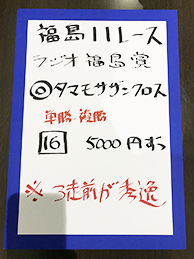 福島11レース
ラジオ福島賞
◎タマモサザンクロス
単勝・複勝
16 5000円ずつ
※3走前が秀逸